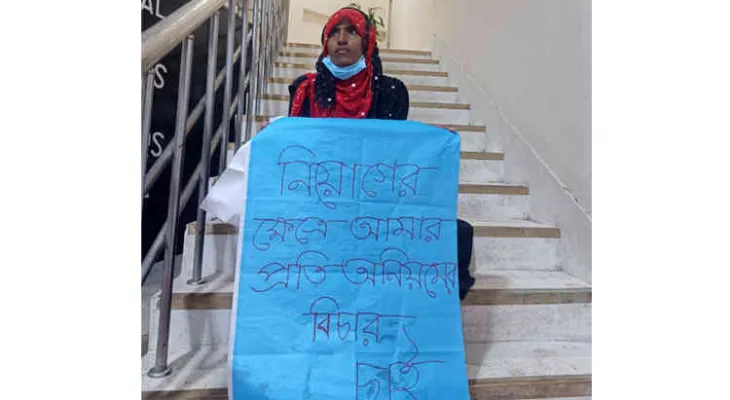 AL
PS
PS
নিয়োগের
ক্ষেত্রে আমার
প্রতি অনিয়মের
বিচার
চাই